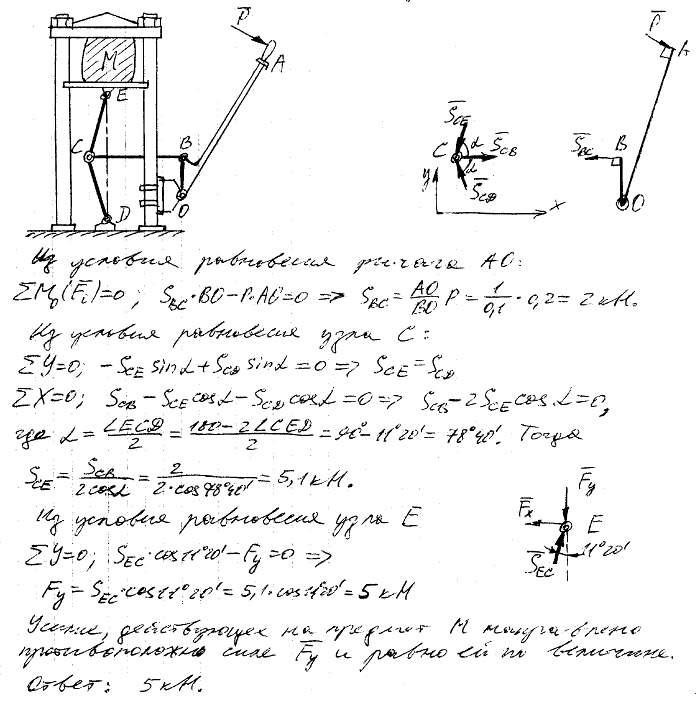 P̅
A
M
E
C
B
O
D
P̅
A
S̅CE
α
C
S̅CB
α
S̅CD
y
x
S̅BC
B
O
Из условия равновесия рычага АО:
ΣM₀(F̅i)=0; SBC·BO−P·AO=0 => SBC = AO/BO P = 1/0,1 · 0,2 = 2 кН.
Из условия равновесия узла С:
ΣY=0; −SCE sinα + SCD sinα = 0 => SCE = SCD
ΣX=0; SCB − SCE cosα − SCD cosα = 0 => SCB − 2SCE cosα = 0,
где α = ∠ECD/2 = (180−2∠CED)/2 = 90°−11°20' = 78°40'. Тогда
SCE = SCB/(2cosα) = 2/(2·cos78°40') = 5,1 кН.
Из условия равновесия узла E
ΣY=0; SEC·cos11°20' − Fy = 0 =>
Fy = SEC·cos11°20' = 5,1·cos11°20' = 5 кН
F̅y
F̅x
E
S̅EC
11°20'
Усилие, действующее на предмет М направлено
противоположно силе F̅y и равно ей по величине.
Ответ: 5 кН.